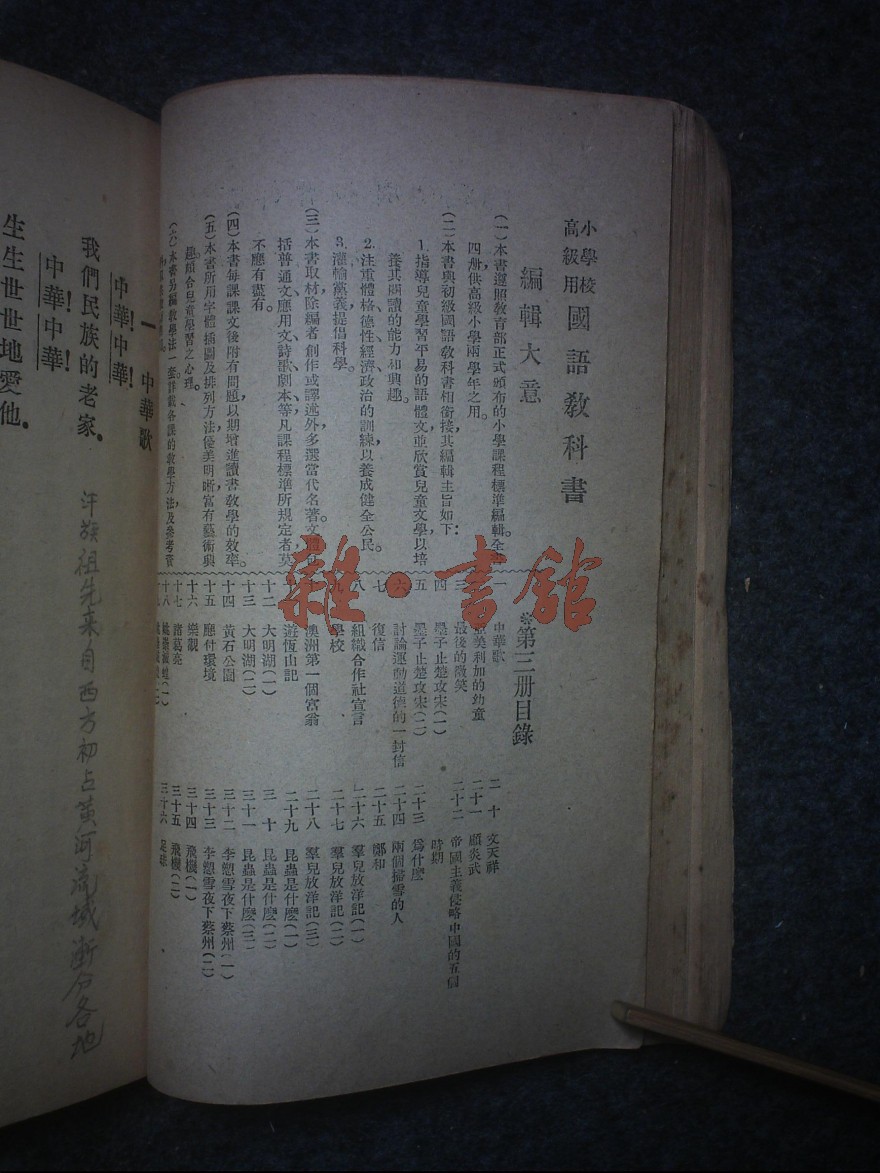 小學校
高級用
國語教科書
編輯大意
(一)本書遵照教育部正式頒布的小學課程標準編輯全
四册供高級小學兩學年之用。
(二)本書與初級國語教科書相銜接其編輯主旨如下:
1.指導兒童學習平易的語體文並欣賞兒童文學以培
養其閱讀的能力和興趣。
2.注重體格德性經濟政治的訓練以養成健全公民。
3.灌輸黨義提倡科學。
(三)本書取材除編者創作或譯述外多選當代名著。文體
括普通文、應用文、詩歌、劇本等凡課程標準所規定者莫
不應有盡有。
(四)本書每課課文後附有問題,以期增進讀書教學的效率。
(五)本書所用字體插圖及排列方法,優美明晰富有藝術興
趣頗合兒童學習之心理。
(六)本書另編教學法一套,詳載各課的教學方法及參考
※第三册目錄
一 中華歌
美利加的幼童
三 最後的微笑
四 墨子止楚攻宋(一)
五 墨子止楚攻宋(二)
六 討論運動道德的一封信
七 復信
八 組織合作社宣言
九 學校
澳洲第一個富翁
遊恆山記
十二 大明湖(一)
十三 大明湖(二)
十四 黃石公園
十五 應付環境
十六 樂觀
十七 諸葛亮
十八
二十 文天祥
二十一 顧炎武
二十二 帝國主義侵略中國的五個
時期
二十三 爲什麼
二十四 兩個掃雪的人
二十五 鄭和
二十六 羣兒放洋記(一)
二十七 羣兒放洋記(二)
二十八 羣兒放洋記(三)
二十九 昆蟲是什麼(一)
三十 昆蟲是什麼(二)
三十一 昆蟲是什麼(三)
三十二 李愬雪夜下蔡州(一)
三十三 李愬雪夜下蔡州(二)
三十四 飛機(一)
三十五 飛機(二)
三十六 足球
雜·書館
一 中華歌
中華!中華!
我們民族的老家。
中華!中華!
生生世世地愛他。
汗族祖先來自西方初占黃河流域漸分各地